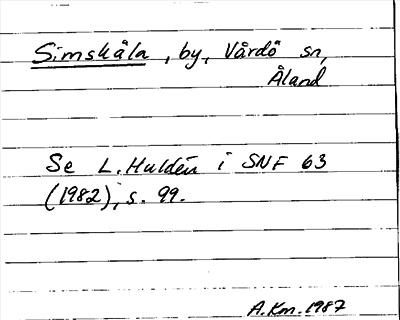 Simskåla, by, Vårdö sn,
Åland
Se L. Huldén i SNF 63
(1982), s. 99.
A.Km. 1987